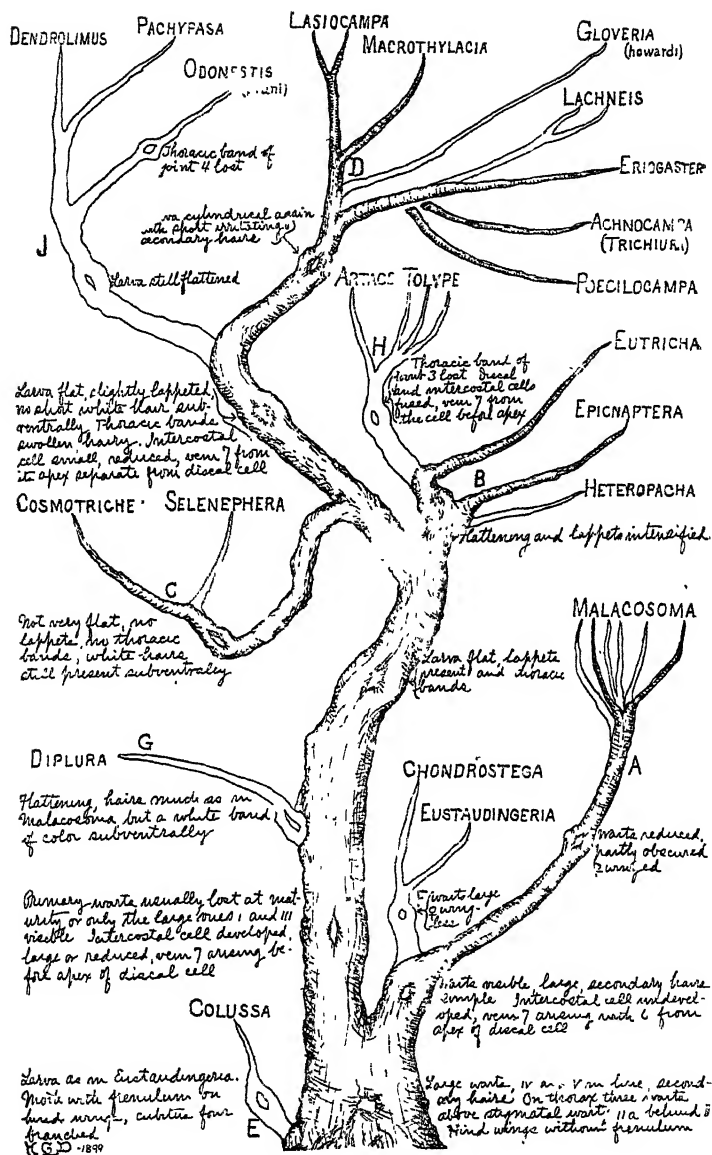 DENDROLIMUS
PACHYPASA
ODONESTIS
LASIOCAMPA
MACROTHYLACIA
GLOVERIA
(howardi)
LACHNEIS
Thoracic band of
joint 4 lost
D
ERIOGASTER
cylindrical again
with short irritating
secondary hairs
ACHNOCAMPA
(TRICHIURA)
J
Larva still flattened
POECILOCAMPA
ARTACE TOLYPE
EUTRICHA
H
Thoracic band of
joint 3 lost Discal
and intercostal cells
fused, vein 7 from
the cell before apex
Larva flat, slightly lappeted,
no short white hair sub-
ventrally Thoracic bands
swollen hairy. Intercostal
cell small, reduced, vein 7 from
its apex separate from discal cell
EPICNAPTERA
B
HETEROPACHA
Flattening and lappets intensified.
COSMOTRICHE
SELENEPHERA
C
Not very flat, no
lappets, no thoracic
bands, white hairs
still present subventrally
MALACOSOMA
Larva flat, lappets
present and thoracic
bands
A
DIPLURA
G
Flattening, hairs much as in
Malacosoma but a white band
of color subventrally
CHONDROSTEGA
EUSTAUDINGERIA
Warts reduced,
partly obscured
♀ winged
warts large
♀ wing-
less
Primary warts usually lost at mat-
urity or only the large ones I and III
visible Intercostal cell developed,
large or reduced, vein 7 arising be-
fore apex of discal cell
Warts visible, large, secondary hairs
simple Intercostal cell undevel-
oped, vein 7 arising with 6 from
apex of discal cell
COLUSSA
Larva as in Eustaudingeria.
Moth with frenulum on
hind wings, cubitus four
branched
E
HGD -1899
Large warts, IV and V in line, second-
ary hairs On thorax three warts
above stigmatal wart IIa behind II
Hind wings without frenulum